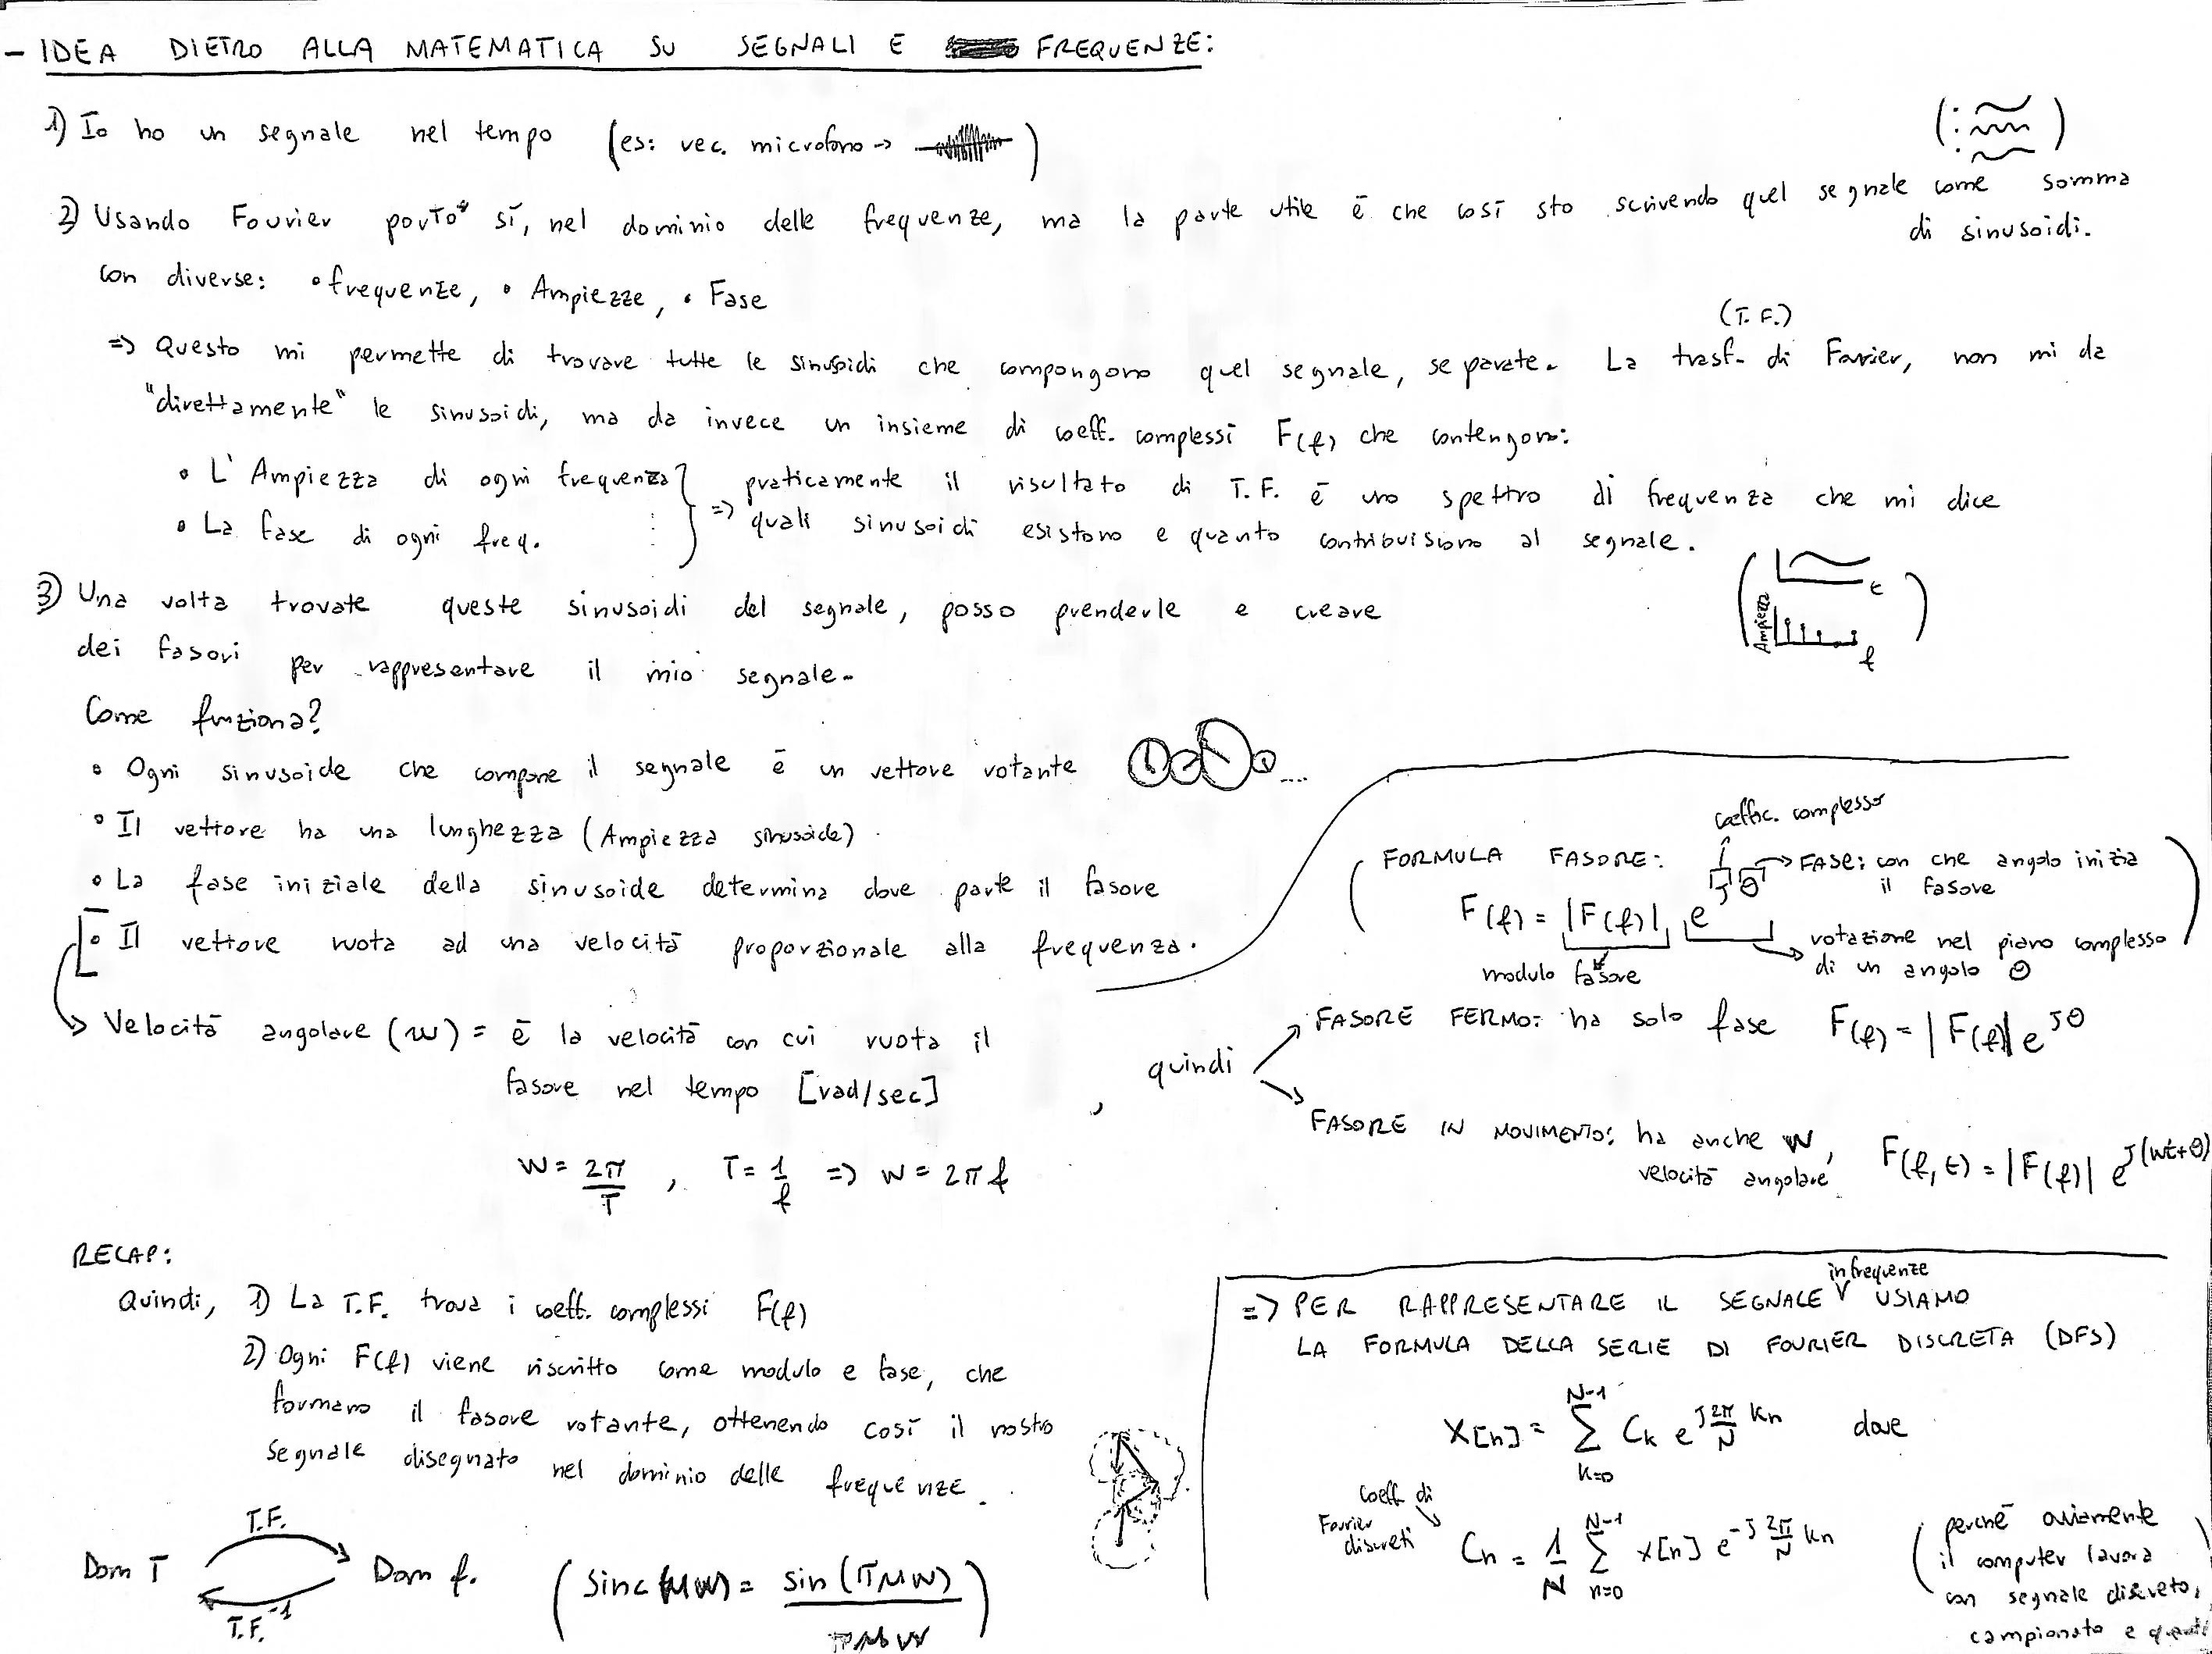 - IDEA DIETRO ALLA MATEMATICA SU SEGNALI E FREQUENZE:
1) Io ho un segnale nel tempo (es: vec. microfono -> )
2) Usando Fourier porto sì, nel dominio delle frequenze, ma la parte utile è che così sto scrivendo quel segnale come somma
di sinusoidi.
con diverse: • frequenze, • Ampiezze, • Fase
(T.F.)
=> Questo mi permette di trovare tutte le sinusoidi che compongono quel segnale, separate. La trasf. di Fourier, non mi da
"direttamente" le sinusoidi, ma da invece un insieme di coeff. complessi F(f) che contengono:
• L'Ampiezza di ogni frequenza
• La fase di ogni freq.
=> praticamente il risultato di T.F. è uno spettro di frequenza che mi dice
quali sinusoidi esistono e quanto contribuiscono al segnale.
t
Ampiezza
f
3) Una volta trovate queste sinusoidi del segnale, posso prenderle e creare
dei fasori per rappresentare il mio segnale.
Come funziona?
• Ogni sinusoide che compone il segnale è un vettore rotante ....
• Il vettore ha una lunghezza (Ampiezza sinusoide).
• La fase iniziale della sinusoide determina dove parte il fasore
• Il vettore ruota ad una velocità proporzionale alla frequenza.
-> Velocità angolare (w) = è la velocità con cui ruota il
fasore nel tempo [rad/sec]
w = 2π/T , T = 1/f => w = 2πf
coeffic. complesso
(FORMULA FASORE: -> FASE: con che angolo inizia
il fasore
F(f) = |F(f)| e^Jθ
-> rotazione nel piano complesso
di un angolo θ)
modulo fasore
quindi
FASORE FERMO: ha solo fase F(f) = |F(f)| e^Jθ
FASORE IN MOVIMENTO: ha anche w, F(f,t) = |F(f)| e^J(wt+θ)
velocità angolare
RECAP:
Quindi, 1) La T.F. trova i coeff. complessi F(f)
2) Ogni F(f) viene riscritto come modulo e fase, che
formano il fasore rotante, ottenendo così il nostro
segnale disegnato nel dominio delle frequenze.
T.F.
Dom T Dom f.
T.F.^-1
(sinc(MW) = sin(πMW)/πMW)
in frequenze
=> PER RAPPRESENTARE IL SEGNALE USIAMO
LA FORMULA DELLA SERIE DI FOURIER DISCRETA (DFS)
x[n] = Σ_{k=0}^{N-1} C_k e^{J 2π/N kn} dove
Coeff. di
Fourier
discreti
C_n = 1/N Σ_{n=0}^{N-1} x[n] e^{-J 2π/N kn}
(perché ovviamente
il computer lavora
con segnale discreto,
campionato e